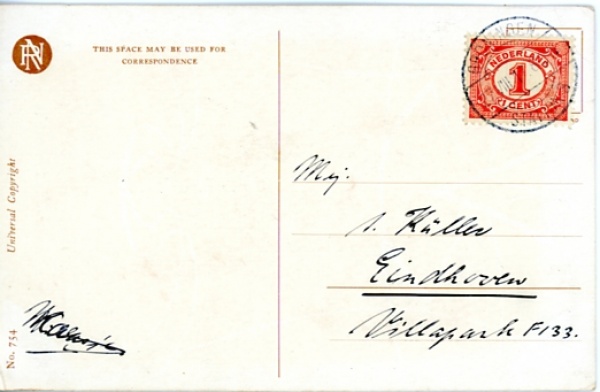 THIS SPACE MAY BE USED FOR
CORRESPONDENCE
NEDERLAND
1
CENT
Mej.
s. Küller
Eindhoven
Villapark F133.
Universal Copyright
No. 754